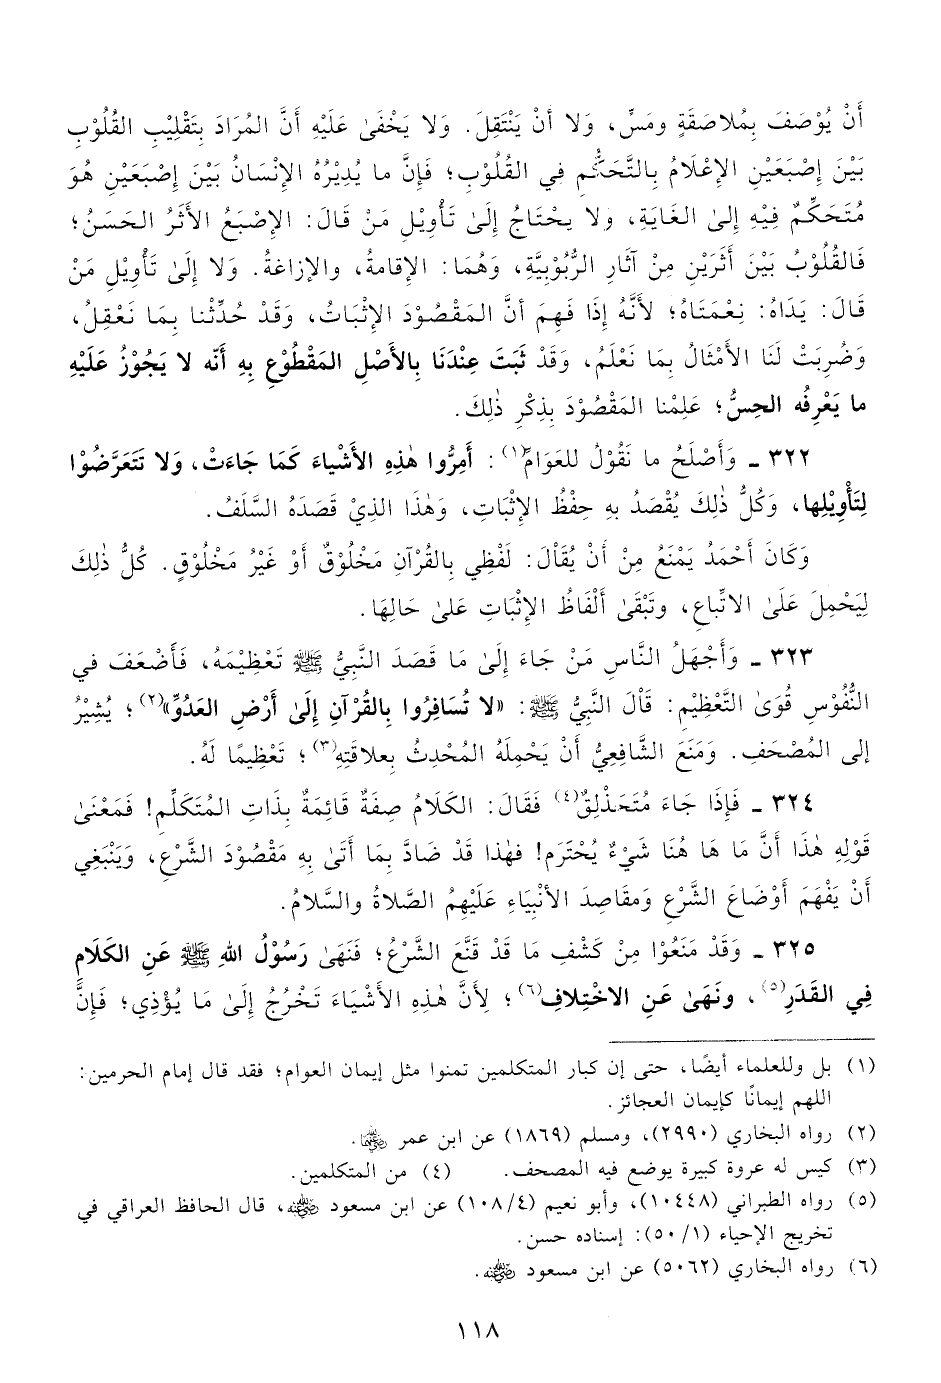 أَنْ يُوْصَفَ بِمُلاصَقَةٍ ومَسٍّ، وَلا أنْ يَنْتَقِلَ. وَلا يَخْفَىٰ عَلَيْهِ أَنَّ المُرَادَ بِتَقْلِيْبِ القُلُوْبِ
بَيْنَ إِصْبَعَيْنِ الإعْلَامُ بِالتَّحَكُّمِ في القُلُوْبِ؛ فَإِنَّ ما يُدِيْرُهُ الإنْسَانُ بَيْنَ إِصْبَعَيْنِ هُوَ
مُتَحَكِّمٌ فِيْهِ إِلىٰ الغَايَةِ، ولا يحْتَاجُ إِلىٰ تَأْوِيْلِ مَنْ قَالَ: الإِصْبَعُ الأَثَرُ الحَسَنُ؛
فَالقُلُوْبُ بَيْنَ أَثَرَيْنِ مِنْ آثَارِ الرُّبُوْبِيَّةِ، وَهُمَا: الإقامةُ، والإزاغةُ. وَلا إِلَىٰ تَأْوِيْلِ مَنْ
قَالَ: يَدَاهُ: نِعْمَتَاهُ؛ لأَنَّهُ إِذَا فَهِمَ أنَّ المَقْصُوْدَ الإِثْبَاتُ، وَقَدْ حُدِّثْنا بِمَا نَعْقِلُ،
وَضُرِبَتْ لَنَا الأَمْثَالُ بِمَا نَعْلَمُ، وَقَدْ ثَبَتَ عِنْدَنَا بِالأَصْلِ المَقْطُوْعِ بِهِ أَنّه لا يَجُوْزُ عَلَيْهِ
ما يَعْرِفُه الحِسُّ؛ عَلِمْنا المَقْصُوْدَ بِذِكْرِ ذٰلِكَ.
٣٢٢ ـ وَأَصْلَحُ ما نَقُوْلُ للعَوَامِّ(١): أَمِرُّوا هٰذِهِ الأَشْياءَ كَمَا جَاءَتْ، وَلا تَتَعَرَّضُوْا
لِتَأْوِيْلِها، وَكُلُّ ذٰلِكَ يُقْصَدُ بِهِ حِفْظُ الإِثْبَاتِ، وَهٰذَا الذِيْ قَصَدَهُ السَّلَفُ.
وَكَانَ أَحْمَدُ يَمْنَعُ مِنْ أَنْ يُقَالَ: لَفْظِي بِالقُرْآنِ مَخْلُوْقٌ أَوْ غَيْرُ مَخْلُوْقٍ. كُلُّ ذٰلِكَ
لِيَحْمِلَ عَلَىٰ الاتِّباعِ، وتَبْقَىٰ أَلْفَاظُ الإِثْبَاتِ عَلىٰ حَالِهَا.
٣٢٣ ـ وَأَجْهَلُ النَّاسِ مَنْ جَاءَ إِلَىٰ مَا قَصَدَ النَّبِيُّ ﷺ تَعْظِيْمَهُ، فَأَضْعَفَ في
النُّفُوْسِ قُوَىٰ التَّعْظِيْمِ: قَالَ النَّبِيُّ ﷺ: «لا تُسَافِرُوا بِالقُرْآنِ إِلَىٰ أَرْضِ العَدُوِّ»(٢)؛ يُشِيْرُ
إلى المُصْحَفِ. وَمَنَعَ الشَّافِعِيُّ أَنْ يَحْمِلَهُ المُحْدِثُ بِعلاقَتِهِ(٣)؛ تَعْظِيمًا لَهُ.
٣٢٤ ـ فَإِذَا جَاءَ مُتَحَذْلِقٌ(٤) فَقَالَ: الكَلامُ صِفَةٌ قَائِمَةٌ بِذَاتِ المُتَكَلِّمِ! فَمَعْنَىٰ
قَوْلِهِ هٰذَا أَنَّ مَا هَا هُنَا شَيْءٌ يُحْتَرَم! فهٰذا قَدْ ضَادَّ بِمَا أَتَىٰ بِهِ مَقْصُوْدَ الشَّرْعِ، وَيَنْبَغِي
أَنْ يَفْهَمَ أَوْضَاعَ الشَّرْعِ وَمَقاصِدَ الأنْبِيَاءِ عَلَيْهِمُ الصَّلاةُ والسَّلامُ.
٣٢٥ ـ وَقَدْ مَنَعُوْا مِنْ كَشْفِ مَا قَدْ قَنَّعَ الشَّرْعُ؛ فَنَهَىٰ رَسُوْلُ اللهِ ﷺ عَنِ الكَلَامِ
فِي القَدَرِ(٥)، ونَهَىٰ عَنِ الاخْتِلافِ(٦)؛ لِأَنَّ هٰذِهِ الأَشْيَاءَ تَخْرُجُ إِلَىٰ مَا يُؤْذِي؛ فَإِنَّ
(١) بل وللعلماء أيضًا، حتى إن كبار المتكلمين تمنوا مثل إيمان العوام؛ فقد قال إمام الحرمين:
اللهم إيمانًا كإيمان العجائز.
(٢) رواه البخاري (٢٩٩٠)، ومسلم (١٨٦٩) عن ابن عمر رضي الله عنهما.
(٣) كيس له عروة كبيرة يوضع فيه المصحف. (٤) من المتكلمين.
(٥) رواه الطبراني (١٠٤٤٨)، وأبو نعيم (١٠٨/٤) عن ابن مسعود رضي الله عنه، قال الحافظ العراقي في
تخريج الإحياء (٥٠/١): إسناده حسن.
(٦) رواه البخاري (٥٠٦٢) عن ابن مسعود رضي الله عنه.
١١٨